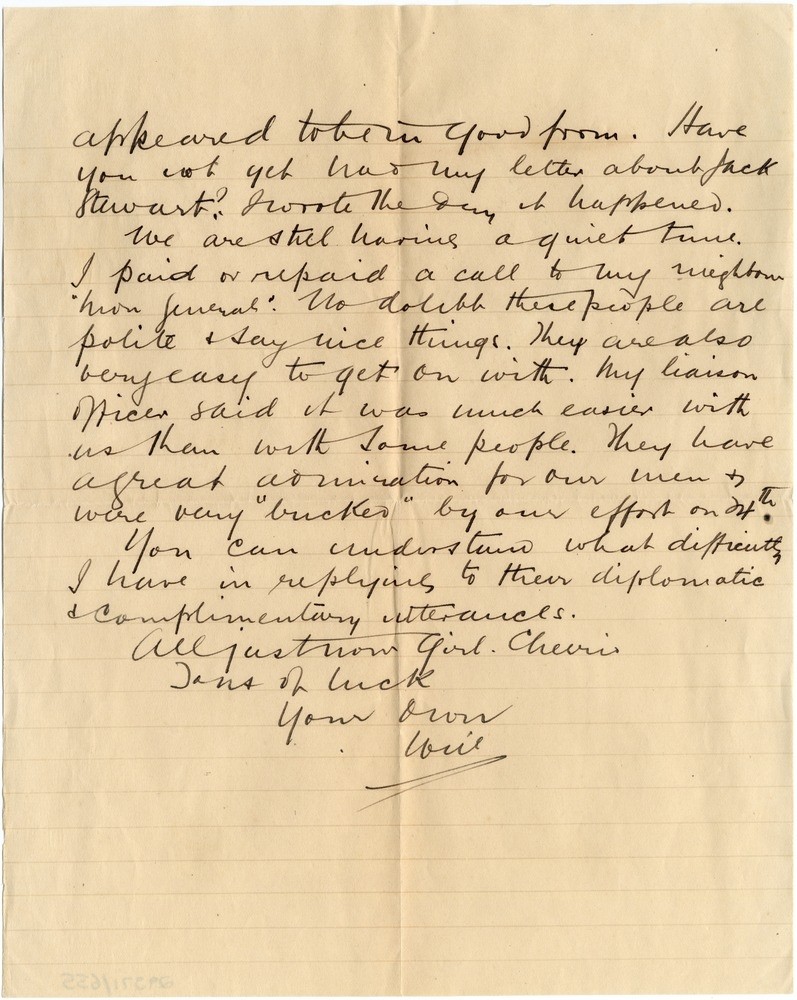 appeared to be in good from. Have
you not yet had my letter about Jack
Stewart? I wrote the day it happened.
We are still having a quiet time.
I paid or repaid a call to my neighbour
"Mon General". No doubt these people are
polite & say nice things. They are also
very easy to get on with. My liaison
officer said it was much easier with
us than with some people. They have
a great admiration for our men &
were very "bucked" by our effort on 24th.
You can understand what difficulty
I have in replying to their diplomatic
& complimentary utterances.
All just now Girl. Cheerio
Tons of luck
Your Own
Will
29371/655